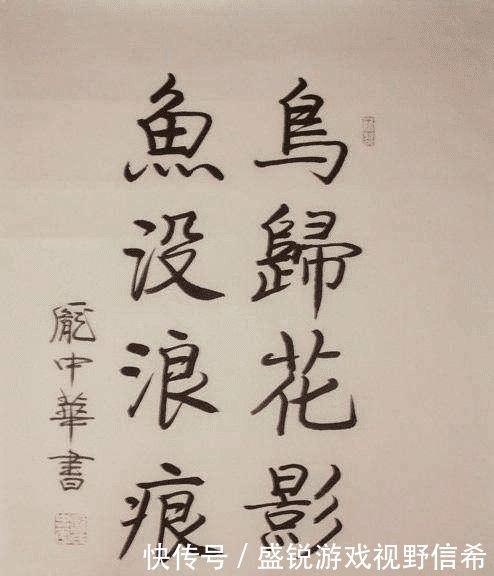 鳥歸花影
魚没浪痕
龐中華書
快传号/盛锐游戏视野信希